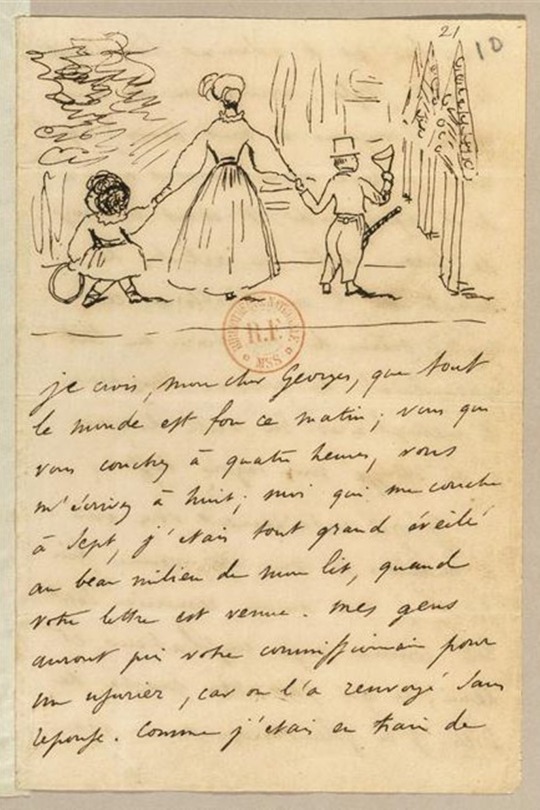 21
10
BIBLIOTHÈQUE NATIONALE
R.F.
MSS
je crois, mon cher Georges, que tout
le monde est fou ce matin ; vous qui
vous couchez à quatre heures, vous
m'écrivez à huit ; moi qui me couche
à sept, j'étais tout grand éveillé
au beau milieu de mon lit, quand
votre lettre est venue. mes gens
auront pris votre commissionnaire pour
un usurier, car on l'a renvoyé sans
reponse. Comme j'étais en train de